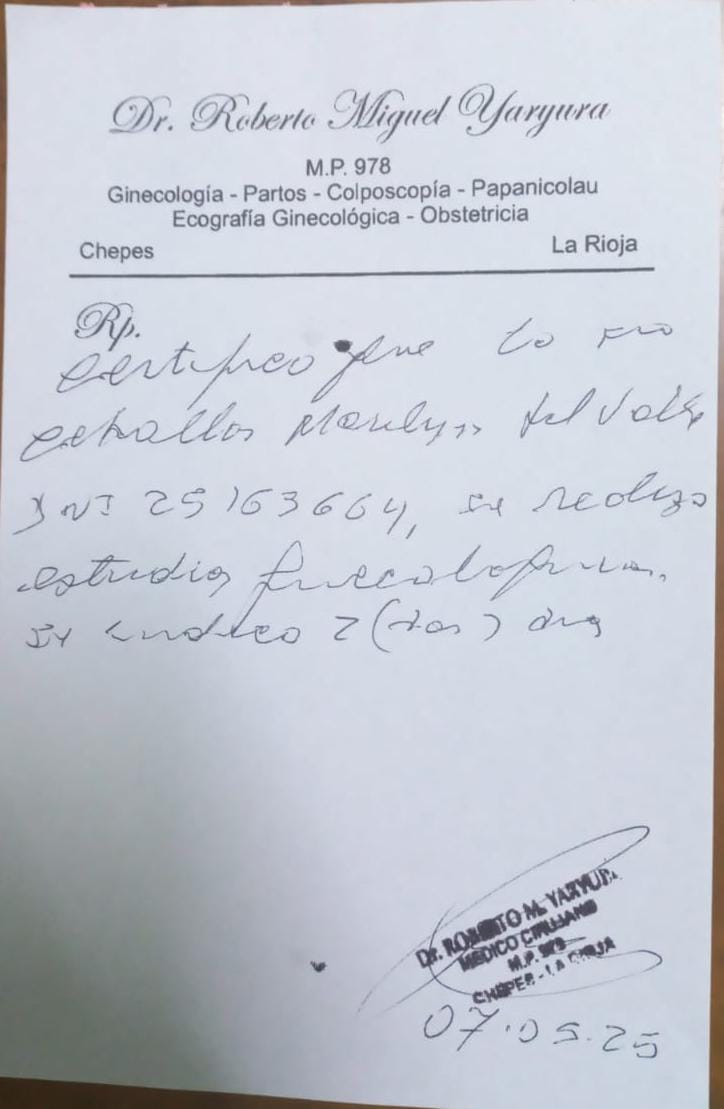 Dr. Roberto Miguel Yaryura
M.P. 978
Ginecología - Partos - Colposcopía - Papanicolau
Ecografía Ginecológica - Obstetricia
Chepes La Rioja
Rp.
Certifico que la
Ceballos del Valle
DNI 25163664, se realizo
estudios ginecologicos.
Se indico 2 (dos) dias
Dr. ROBERTO M. YARYURA
MEDICO CIRUJANO
M.P. 978
CHEPES - LA RIOJA
07.05.25